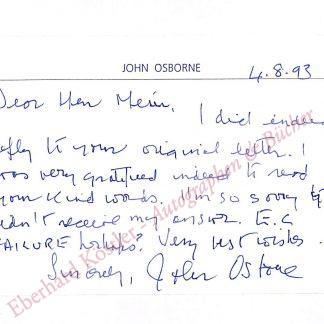 JOHN OSBORNE
4.8.93
Dear Herr Meier, I did indeed
reply to your original letter. I
was very gratified indeed to read
your kind words. I'm so sorry you
didn't receive my answer. E.C
FAILURE perhaps? Very best wishes.
Sincerely, John Osborne
Eberhard Köstler - Autographen & Bücher